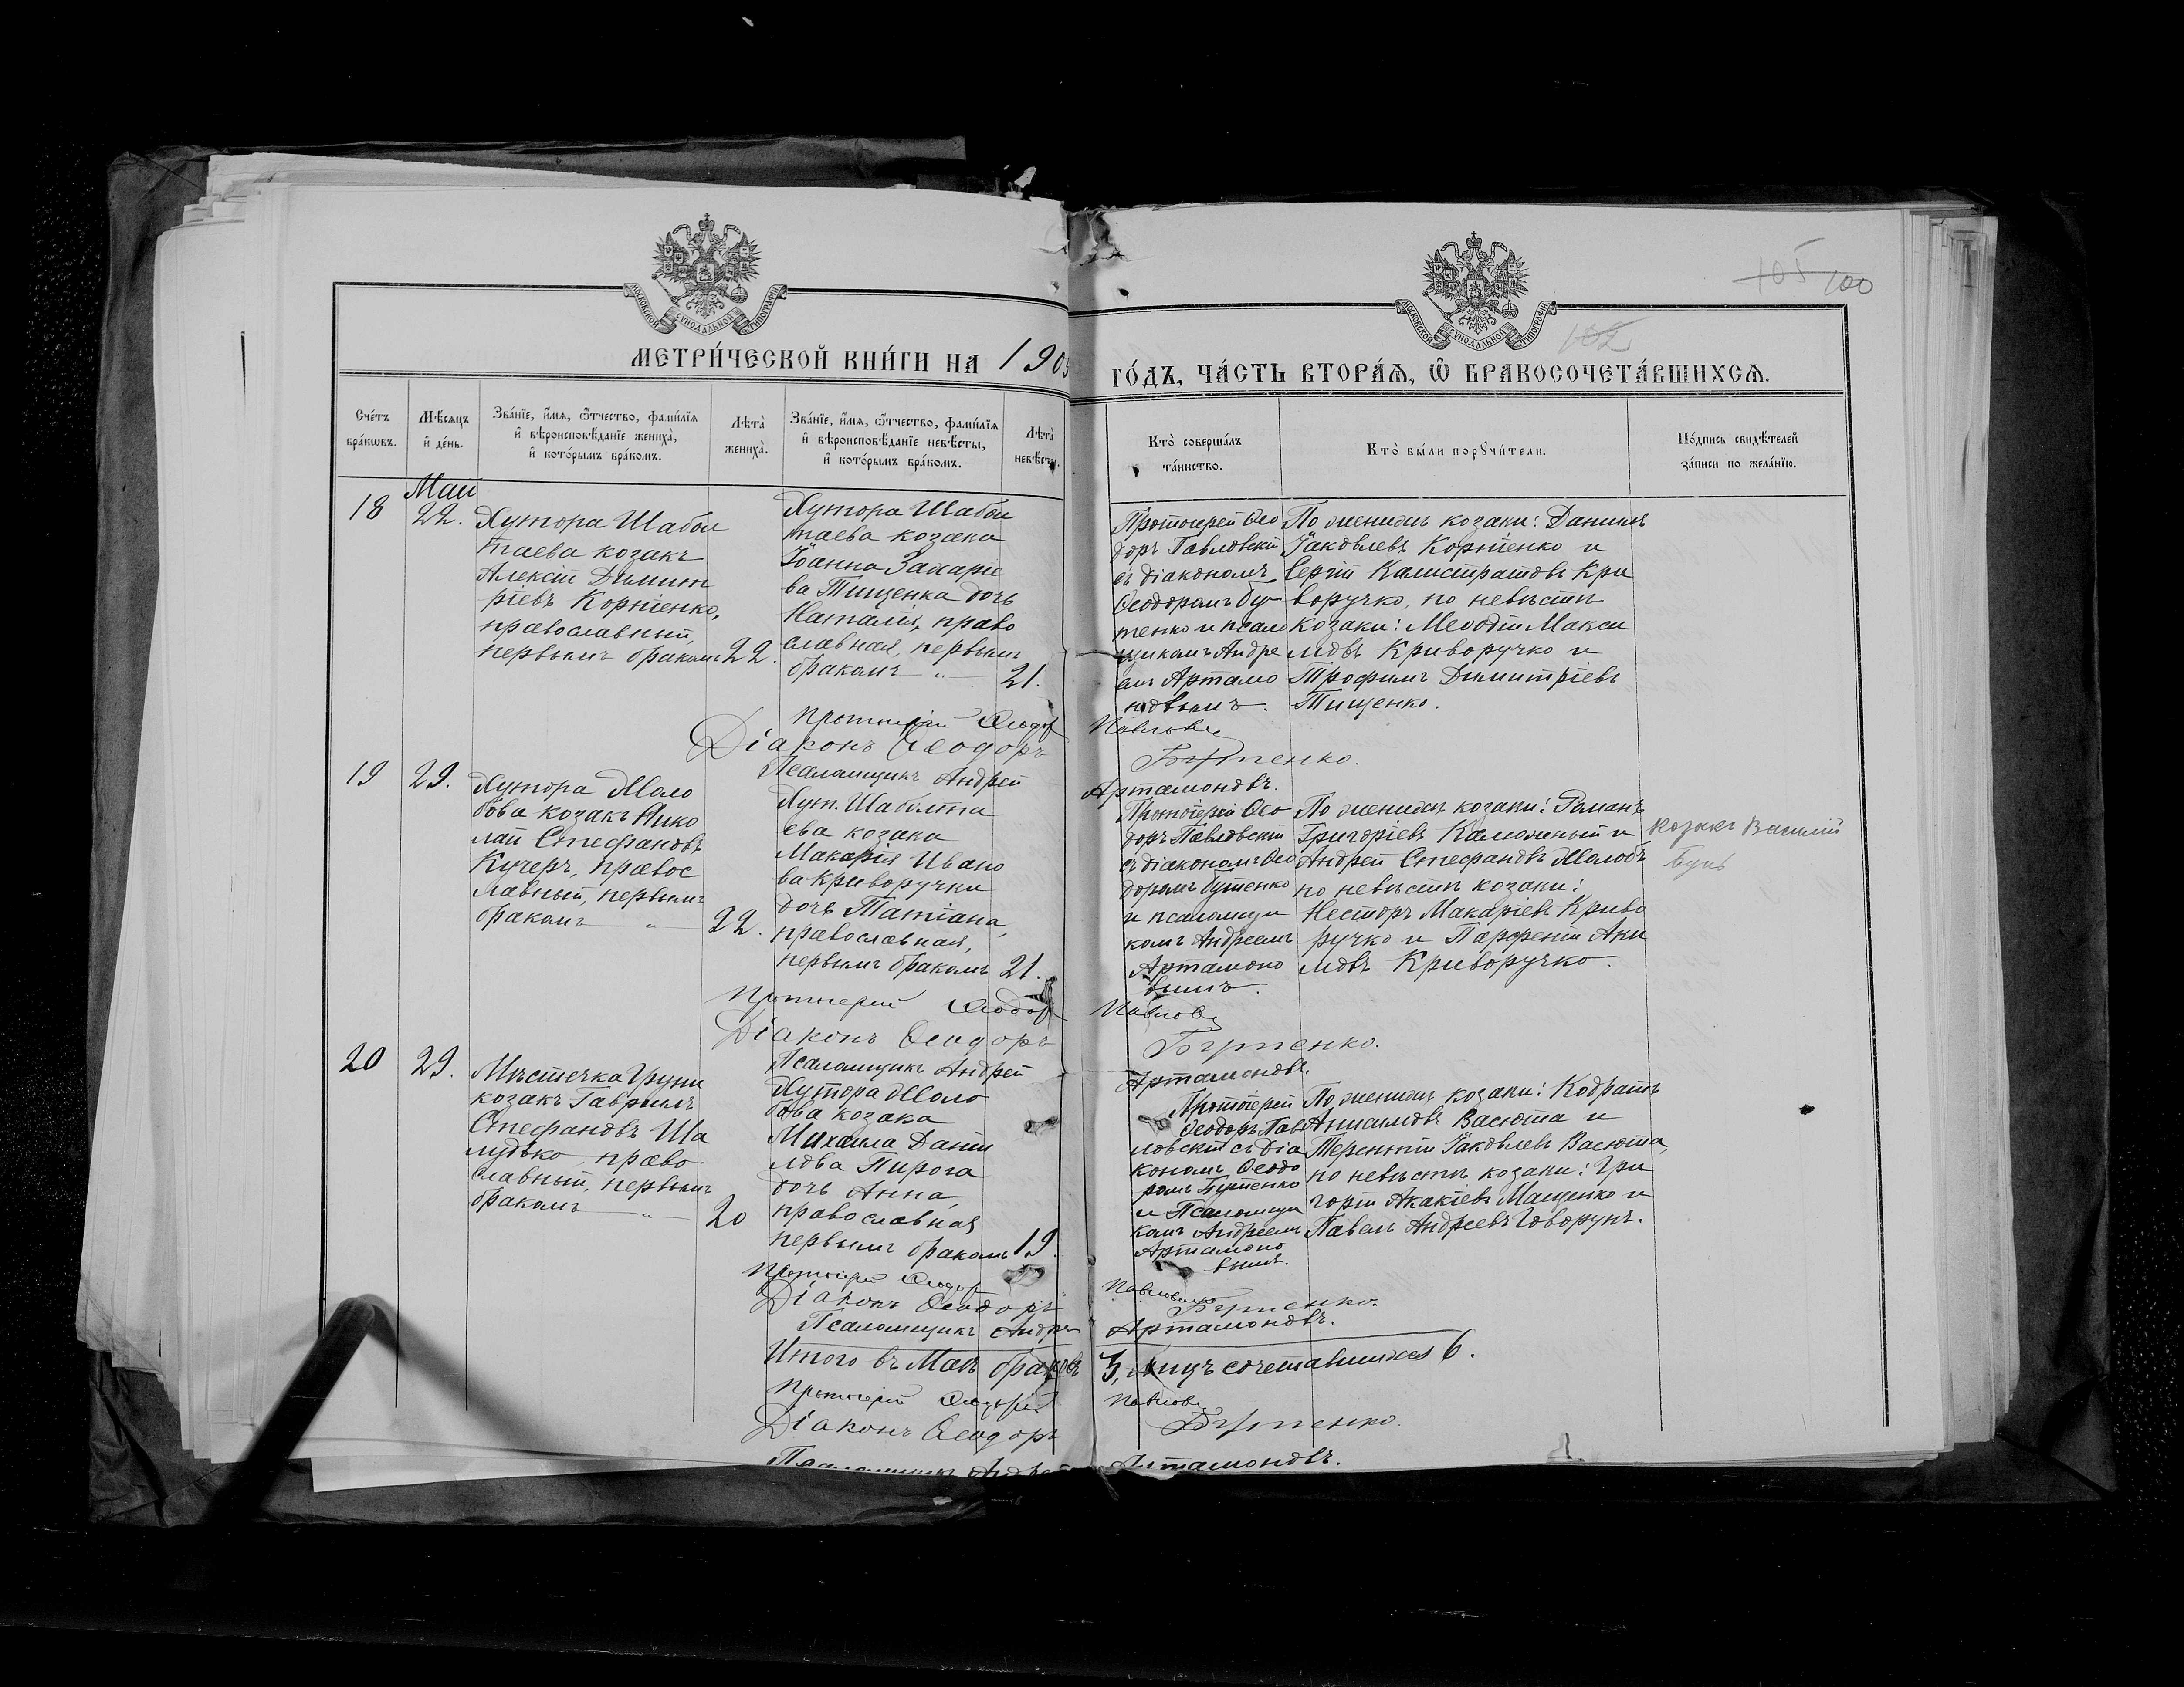 105 100
102
МОСКОВСКОЙ СУНОДАЛЬНОЙ ТИПОГРАФІИ
МОСКОВСКОЙ СУНОДАЛЬНОЙ ТИПОГРАФІИ
МЕТРИ́ЧЕСКОЙ КНИ́ГИ НА 190
ГО́ДЪ, ЧА́СТЬ ВТОРА́Ѧ, Ѽ БРАКОСОЧЕТА́ВШИХСѦ.
Сче́тъ бра́кѡвъ.
Мѣ́сяцъ и҆ де́нь.
Зва́нїе, и҆́мя, ѻ҆́тчество, фами́лїя
и҆ вѣроисповѣ́данїе жениха̀,
и҆ кото́рымъ бра́комъ.
Лѣ́та̀ жениха̀.
Зва́нїе, и҆́мя, ѻ҆́тчество, фами́лїя
и҆ вѣроисповѣ́данїе невѣ́сты,
и҆ кото́рымъ бра́комъ.
Лѣ́та̀ невѣ́сты.
Кто̀ соверша́лъ
та́инство.
Кто̀ бы́ли порꙋчи́тели.
По́дпись свидѣ́телей
за́писи по жела́нїю.
18
Маи
22.
Хутора Шабол
таева козакъ
Алексій Димит
ріевъ Корніенко,
православный,
первымъ бракомъ 22.
Хутора Шабол
таева козака
Іоанна Захаріе
ва Тищенка дочь
Наталія, право
славная, первымъ
бракомъ „ 21.
Протоіерей Ѳео
доръ Павловскій
съ діакономъ
Ѳеодоромъ Бу
тенко и псало
щикомъ Андре
емъ Артамо
новымъ.
По женихѣ козаки: Даніилъ
Іаковлевъ Корніенко и
Сергій Калистратовъ Кри
воручко, по невѣстѣ
козаки: Меѳодій Макси
мовъ Криворучко и
Трофимъ Димитріевъ
Тищенко.
Протоіерей Ѳеодор Павловс
Діаконъ Ѳеодоръ Бутенко.
Псаломщикъ Андрей Артамоновъ.
19
29.
Хутора Моло
бова козакъ Нико
лай Стефановъ
Кучеръ, правос
лавный, первымъ
бракомъ „ 22.
Хут. Шаболта
ева козака
Макарія Ивано
ва Криворучки
дочь Татіана,
православная,
первымъ бракомъ 21.
Протоіерей Ѳео
доръ Павловскій
съ діакономъ Ѳео
доромъ Бутенко
и псаломщи
комъ Андреемъ
Артамоно
вымъ.
По женихѣ козаки: Романъ
Григоріевъ Каложный и
Андрей Стефановъ Молобъ
по невѣстѣ козаки:
Несторъ Макаріевъ Криво
ручко и Парфеній Аки
мовъ Криворучко.
Козакъ Василій
Протоіерей Ѳеодор Павловс
Діаконъ Ѳеодоръ Бутенко.
Псаломщикъ Андрей Артамоновъ
20
29.
Мѣстечка Груни
козакъ Гавріилъ
Стефановъ Ша
лудько, право
славный, первымъ
бракомъ „ 20
Хутора Моло
бова козака
Михаила Даніи
лова Пирога
дочь Анна,
православная
первымъ бракомъ 19.
Протоіерей
Ѳеодоръ Пав
ловскій съ діа
кономъ Ѳеодо
ромъ Бутенко
и Псаломщи
комъ Андреемъ
Артамоно
вымъ.
По женихѣ козаки: Кодратъ
Васюта и
Терентій Іаковлевъ Васюта,
по невѣстѣ козаки: Гри
горій Акакіевъ Мащенко и
Павелъ Андреевъ Говорунъ.
Протоіерей Ѳеодор Павловскій
Діаконъ Ѳеодоръ Бутенко.
Псаломщикъ Андрей Артамоновъ.
Итого въ Маѣ браковъ 3, лицъ сочетавшихся 6.
Протоіерей Ѳеодор Павловс
Діаконъ Ѳеодоръ Бутенко.
Псаломщикъ Андрей Артамоновъ.